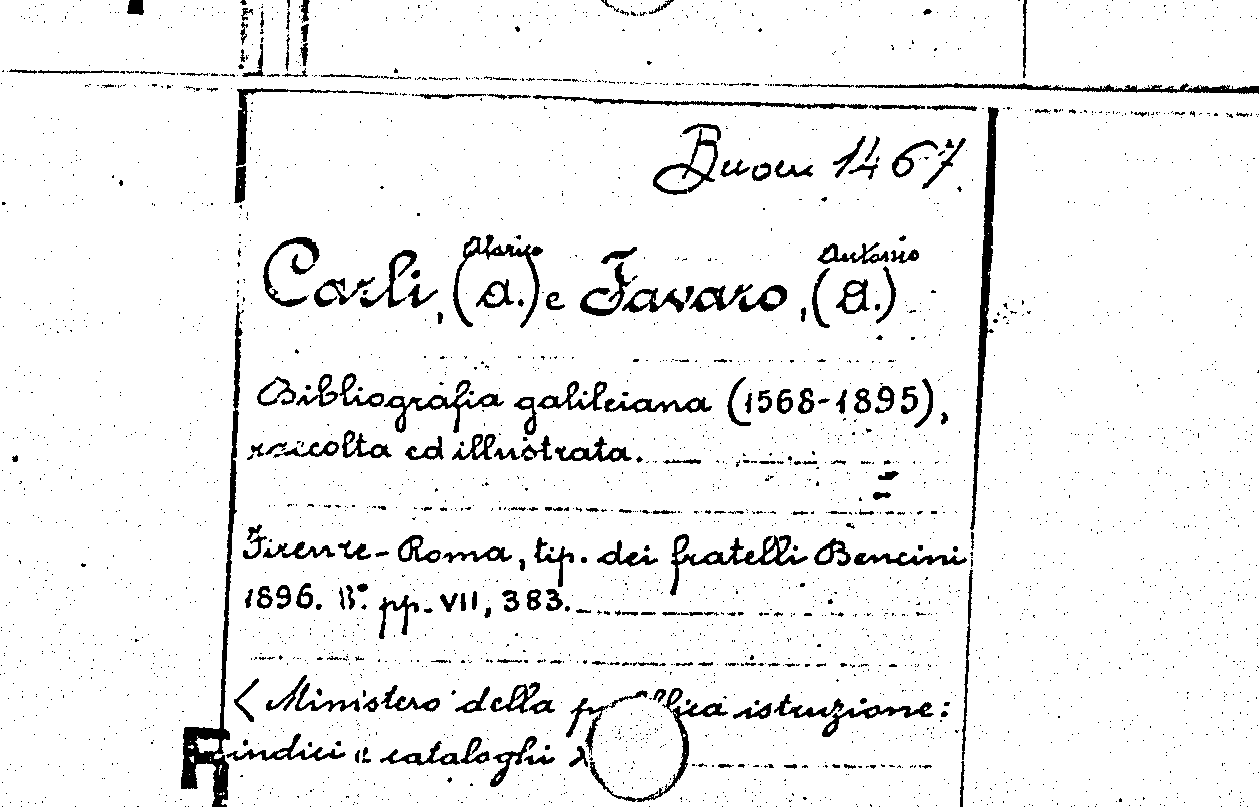 Buon 1467
Alarico Antonio
Carli, (A.) e Favaro, (A.)
Bibliografia galileiana (1568-1895),
raccolta ed illustrata.
Firenze-Roma, tip. dei fratelli Bencini
1896. 8° pp. VII, 383.
< Ministero della pubblica istruzione:
indici e cataloghi >